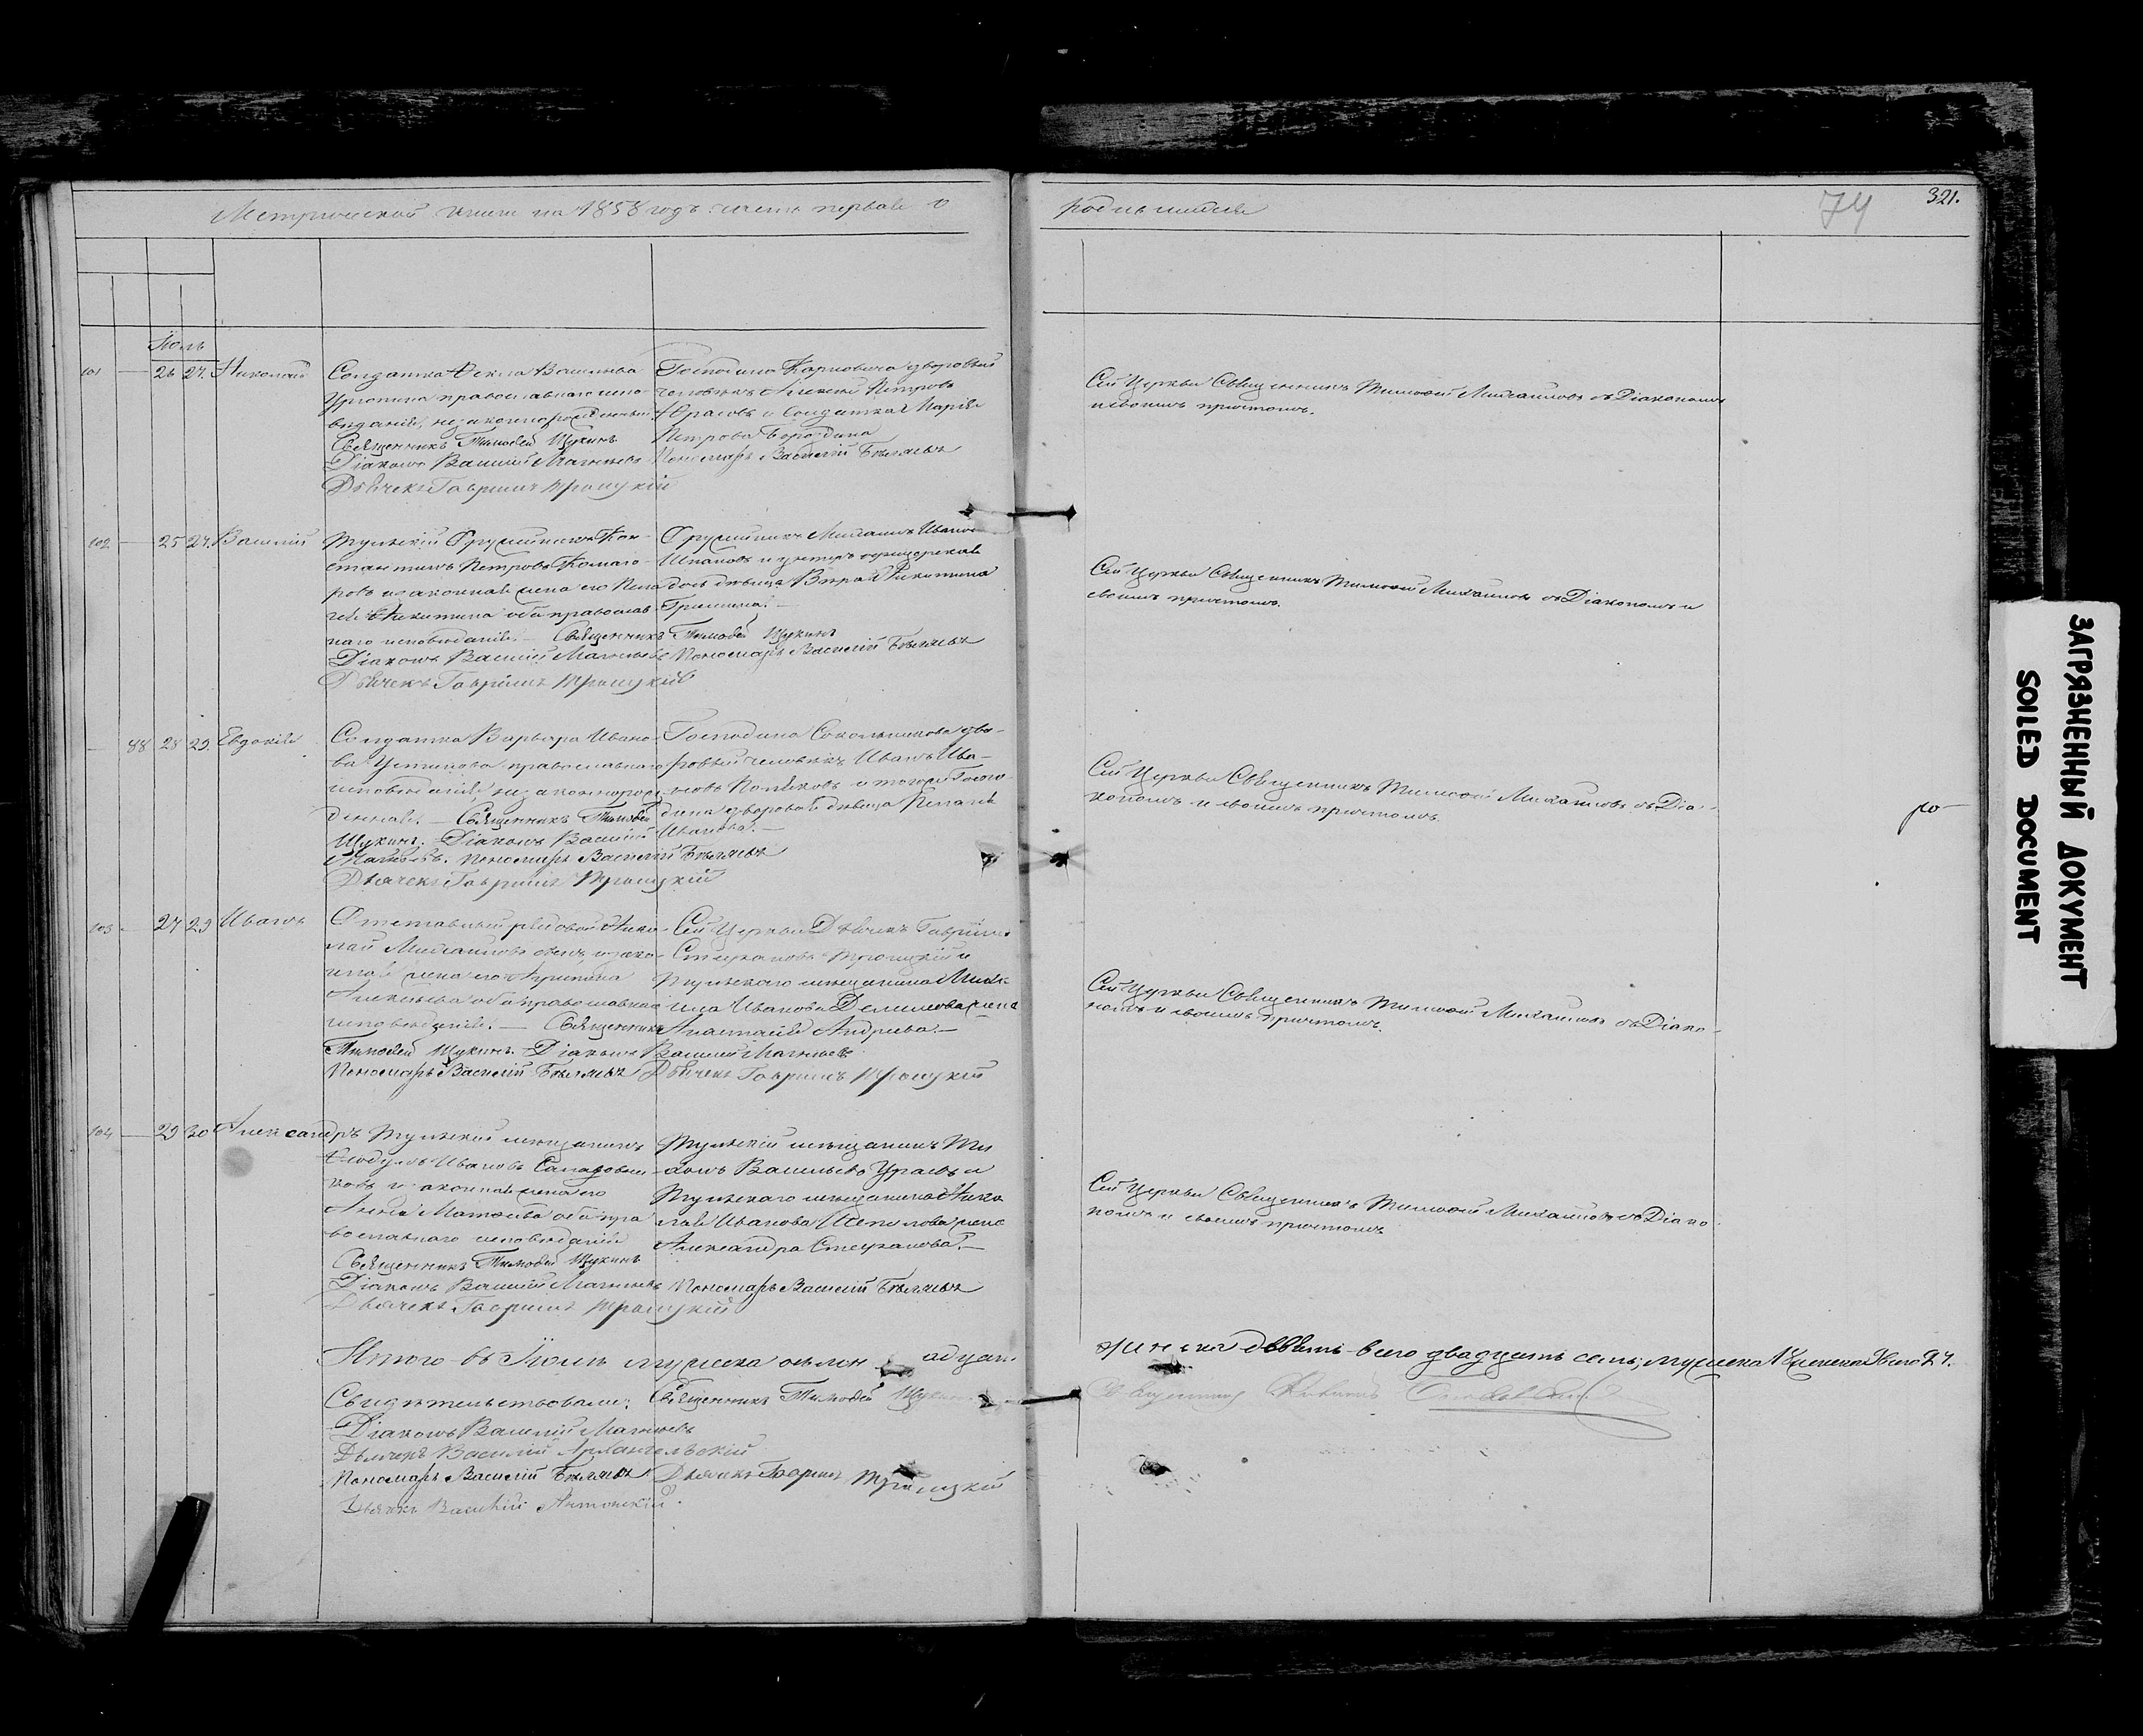 Метрической книги на 1858 годъ: часть первая о
родившихся
74
321.
Іюль
101 — 26 27. Николай
Солдатка Ѳекла Васильева
православнаго испо-
веданія, незаконнорожденный
Священникъ Тимоѳей Щукинъ
Діаконъ Василій
Дьячекъ Гавріилъ Троицкій
Господина Карповича дворовый
человѣкъ Алексей Петровъ
и Солдатка Марія
Петрова Бородина
Пономарь Василій Бѣляевъ
Сей Церкви Священникъ Тимоѳей Михайловъ съ Діакономъ
и своимъ причтомъ.
102 — 25 27. Василій
Тульскій Оружейникъ Кон-
стантинъ Петровъ Комаго-
ровъ и законная жена его Пела-
гея Никитина оба православ-
наго исповеданія. — Священникъ Тимоѳей Щукинъ
Діаконъ Василій
Дьячекъ Гавріилъ Троицкій
Оружейникъ Михаилъ Ивановъ
и унтеръ офицерская
дочь девица Вѣра Никитина
Гришина. —
Пономарь Василій Бѣляевъ
Сей Церкви Священникъ Тимоѳей Михайловъ съ Діакономъ и
своимъ причтомъ.
— 88 28 29. Евдокія
Солдатка Варвара Ивано-
ва Устинова православнаго
исповеданія, незаконнорож-
денная. — Священникъ Тимоѳей
Щукинъ. Діаконъ Василій
Пономарь Василій Бѣляевъ
Дьячекъ Гавріилъ Троицкій
Господина Сокольникова дво-
ровый человѣкъ Иванъ Ива-
новъ Поляковъ и тогожъ Госпо-
дина дворовая девица Пелагея
Иванова. —
Сей Церкви Священникъ Тимоѳей Михайловъ съ Діа-
кономъ и своимъ причтомъ.
103 — 27 29 Иванъ
Отставный рядовой Нико-
лай Михайловъ и зако-
нная жена его Акулина
Алексеева оба православнаго
исповеданія. — Священникъ
Тимоѳей Щукинъ. Діаконъ Василій
Пономарь Василій Бѣляевъ Дьячекъ Гавріилъ Троицкій
Сей Церкви Дьячекъ Гавріилъ
Стефановъ Троицкій и
Тульскаго мещанина Миха-
ила Иванова Демидова жена
Анастасія Андреева. —
Сей Церкви Священникъ Тимоѳей Михайловъ съ Діако-
номъ и своимъ причтомъ.
104 — 29 30 Александръ
Тульскій мещанинъ
Ѳеодулъ Ивановъ
и законная жена его
Анна Матвеева оба пра-
вославнаго исповеданія
Священникъ Тимоѳей Щукинъ
Діаконъ Василій
Дьячекъ Гавріилъ Троицкій
Тульскій мещанинъ Ти-
хонъ Васильевъ и
Тульскаго мещанина Нико-
лая Иванова жена
Александра Стефанова. —
Пономарь Василій Бѣляевъ
Сей Церкви Священникъ Тимоѳей Михайловъ съ Діако-
номъ и своимъ причтомъ
Итого въ Іюлѣ мужеска
женска девять всего двадцать семь; мужеска 18 женска 9 всего 27.
Свидѣтельствовали: Священникъ Тимоѳей Щукинъ
Діаконъ Василій
Дьячекъ Василій Архангельскій
Пономарь Василій Бѣляевъ Дьячекъ Гавріилъ Троицкій
Дьячекъ Василій
ЗАГРЯЗНЕННЫЙ ДОКУМЕНТ
SOILED DOCUMENT